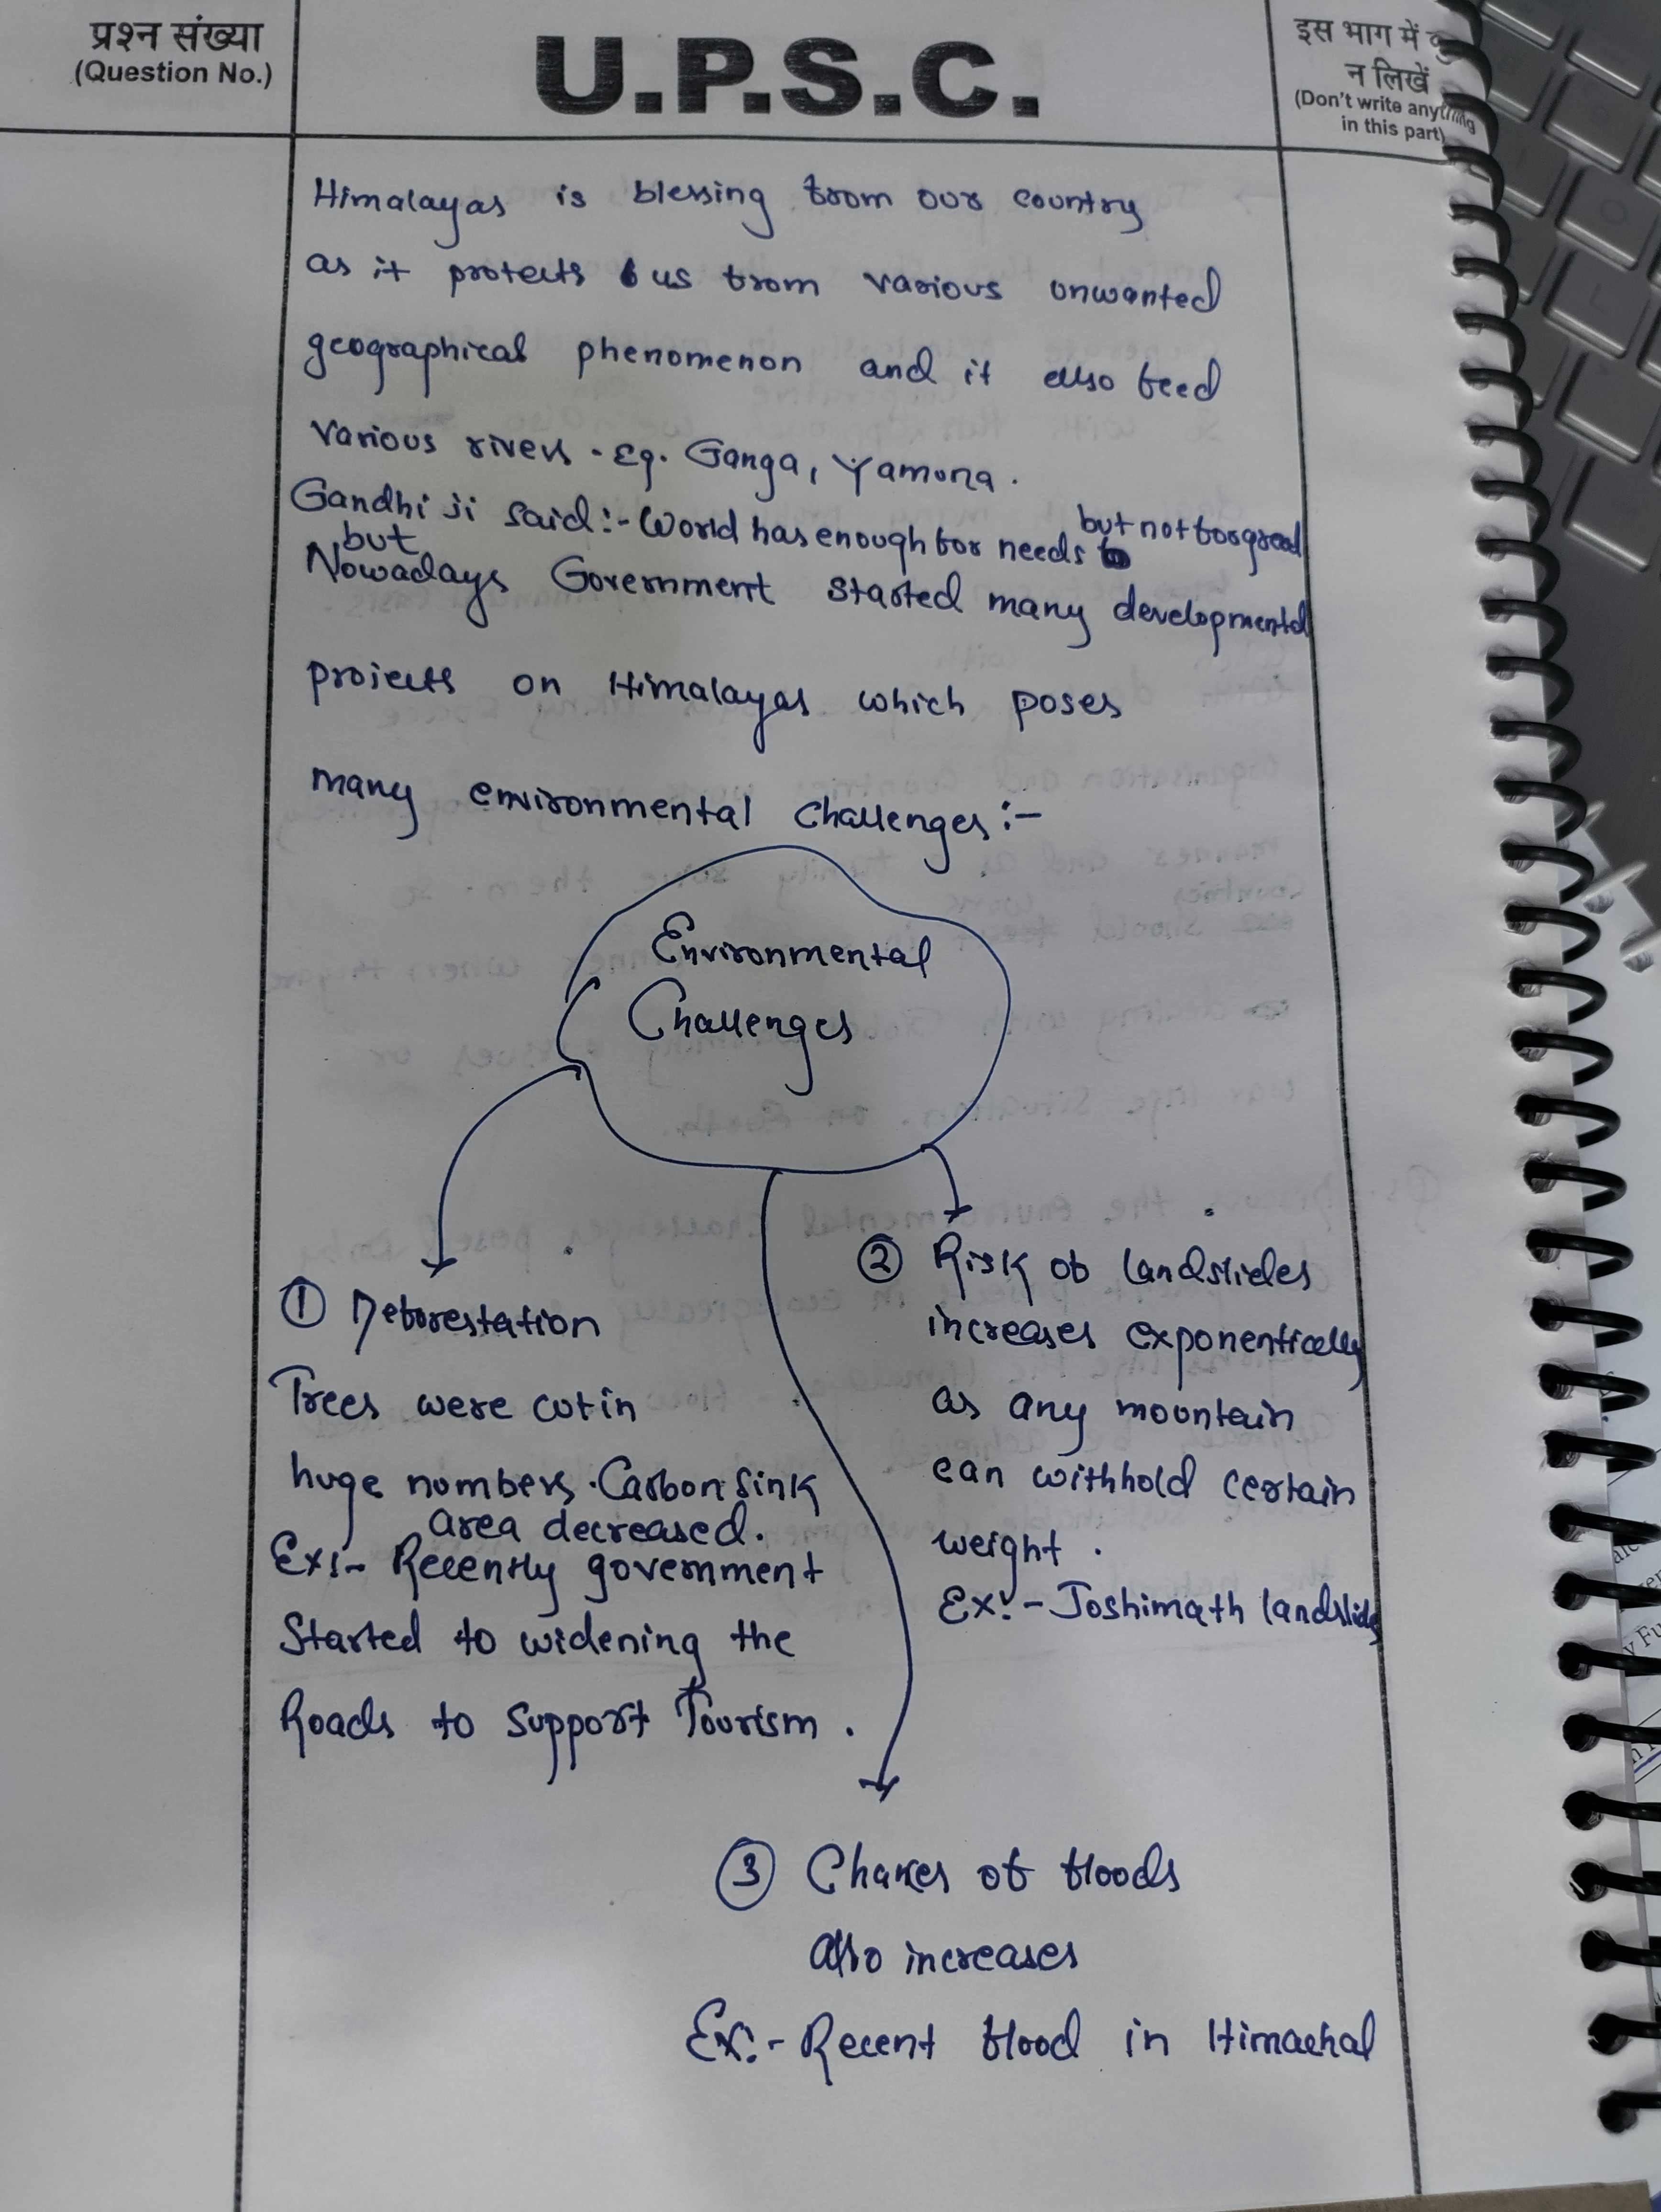 प्रश्न संख्या
(Question No.)
U.P.S.C.
इस भाग में कु
न लिखें
(Don't write anything
in this part)
Himalayas is blessing from our country
as it protects us from various unwanted
geographical phenomenon and it also feed
various rivers. Eg. Ganga, Yamuna.
Gandhi ji said:- World has enough for needs but not for greed
but
Nowadays Government started many developmental
projects on Himalayas which poses
many environmental challenges:-
Environmental
Challenges
① Deforestation
Trees were cut in
huge numbers. Carbon sink
area decreased.
Ex:- Recently government
started to widening the
Roads to support Tourism.
② Risk of landslides
increases exponentically
as any mountain
can withhold certain
weight.
Ex:- Joshimath landslide
③ Chances of floods
also increases
Ex:- Recent flood in Himachal